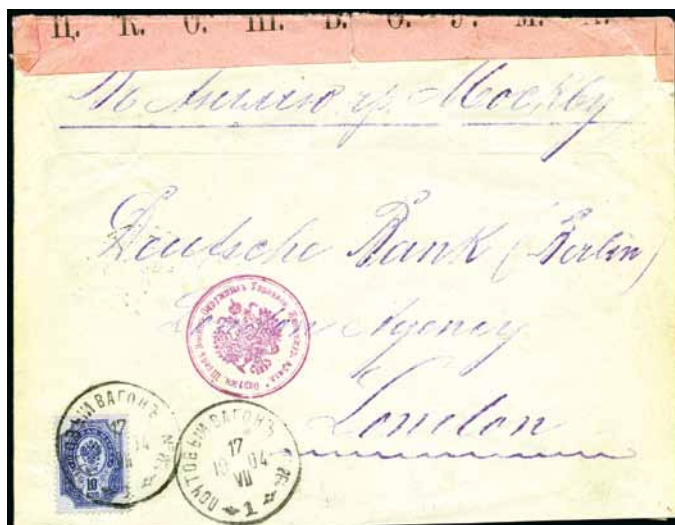 Ц. К. О. Ш. В. О. У. М. А.
Въ Англію чр. Москву
Deutsche Bank (Berlin)
London Agency
London
ПОЧТОВЫЙ ВАГОНЪ
17
10 04
VII
1
ПОЧТОВЫЙ ВАГОНЪ
17
04
10